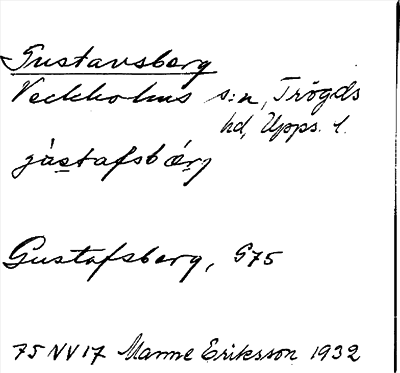 Gustavsberg
Veckholms s:n, Trögds
hd, Upps. l.
gùstafsbærj
Gustafsberg, G75
75 NV17 Manne Eriksson 1932